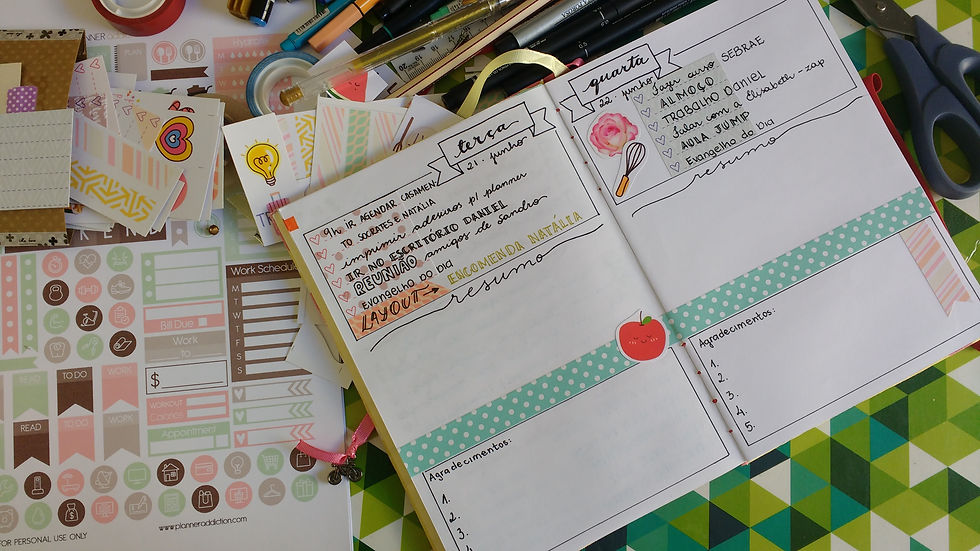 terça
21. junho
9h IR AGENDAR CASAMEN
TO SOCRATES E NATÁLIA
imprimir adesivos p/ planner
IR NO ESCRITÓRIO DANIEL
REUNIÃO amigos de Sandro
Evangelho do DIA
LAYOUT → ENCOMENDA NATÁLIA
resumo
Agradecimentos:
1.
2.
3.
quarta
22. junho
fazer curso SEBRAE
ALMOÇO
TRABALHO DANIEL
falar com a Elisabeth - zap
AULA JUMP
Evangelho do Dia
resumo
Agradecimentos:
1.
2.
3.
4.
5.
Work Schedule
M
T
W
T
F
S
Bill Due
Work
to
$
WORKOUT
Calories
Appointment
READ
TO DO
WORK
READ
TO DO
WORK
www.planneraddiction.com
FOR PERSONAL USE ONLY